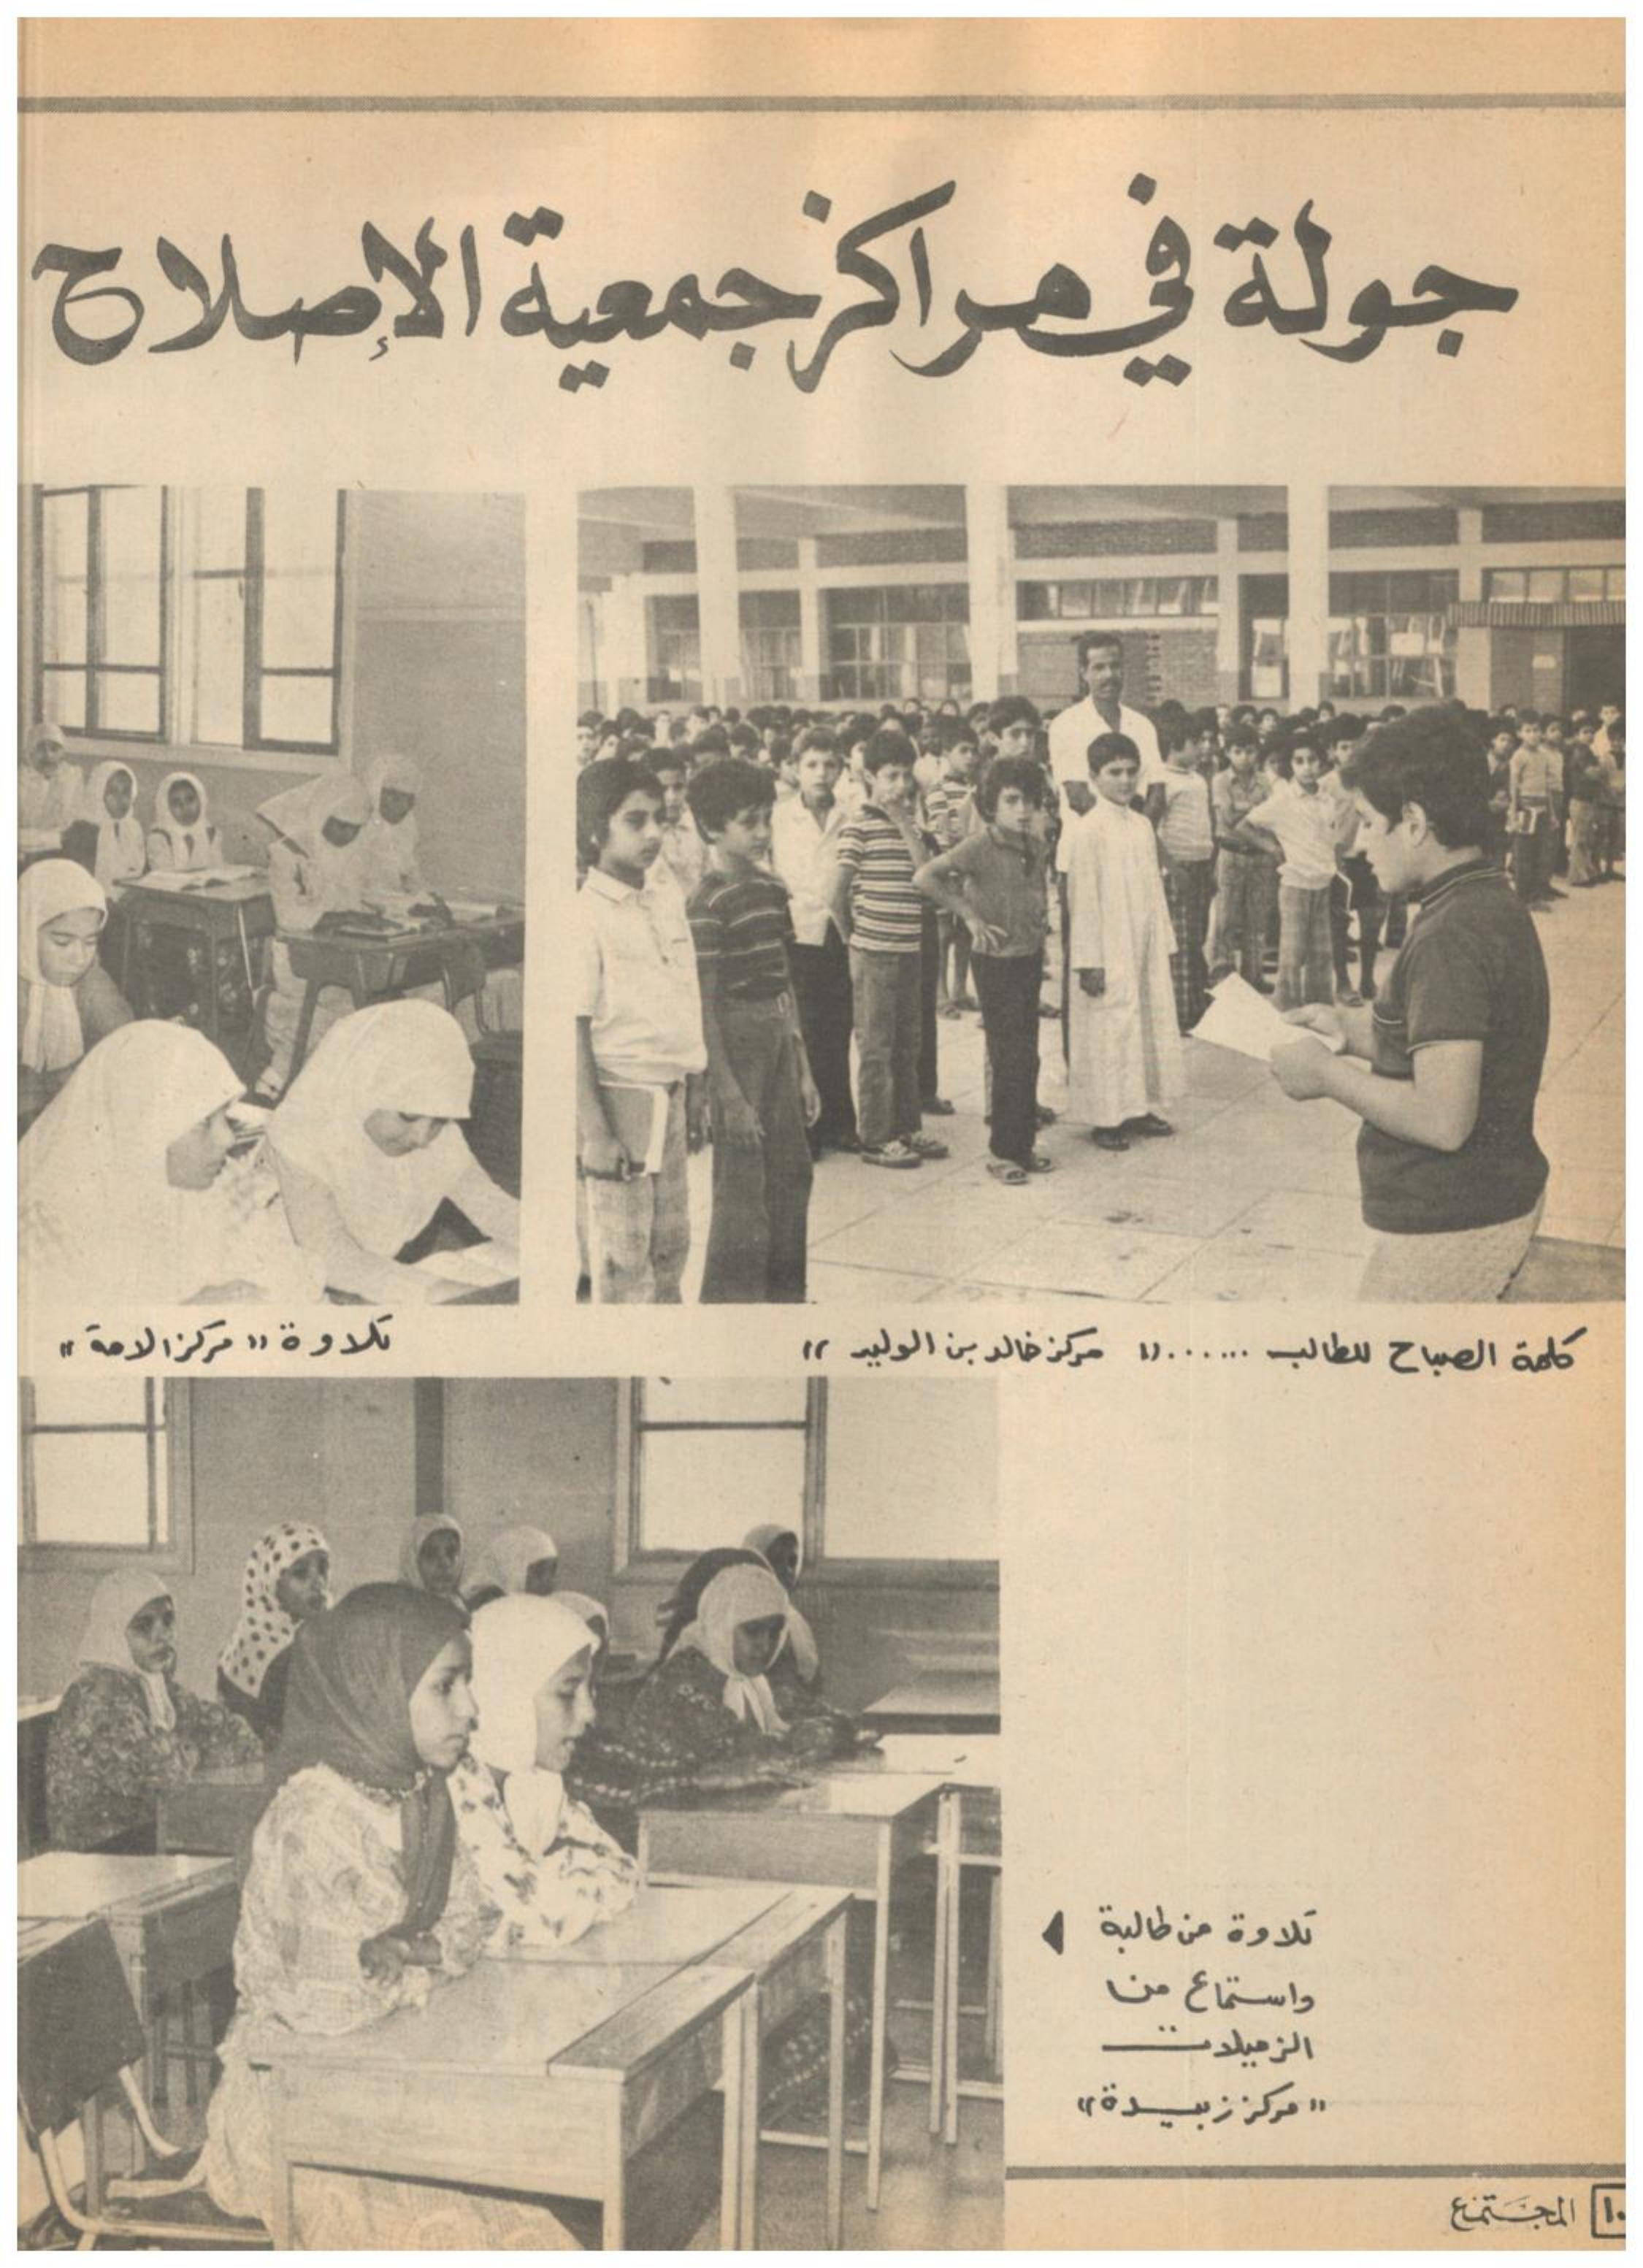 جولة في مراكز جمعية الإصلاح
كلمة الصباح للطالب ...... « مركز خالد بن الوليد »
تلاوة « مركز الامة »
تلاوة من طالبة
واستماع من
الزميلات
« مركز زبيدة »
١٠ المجتمع